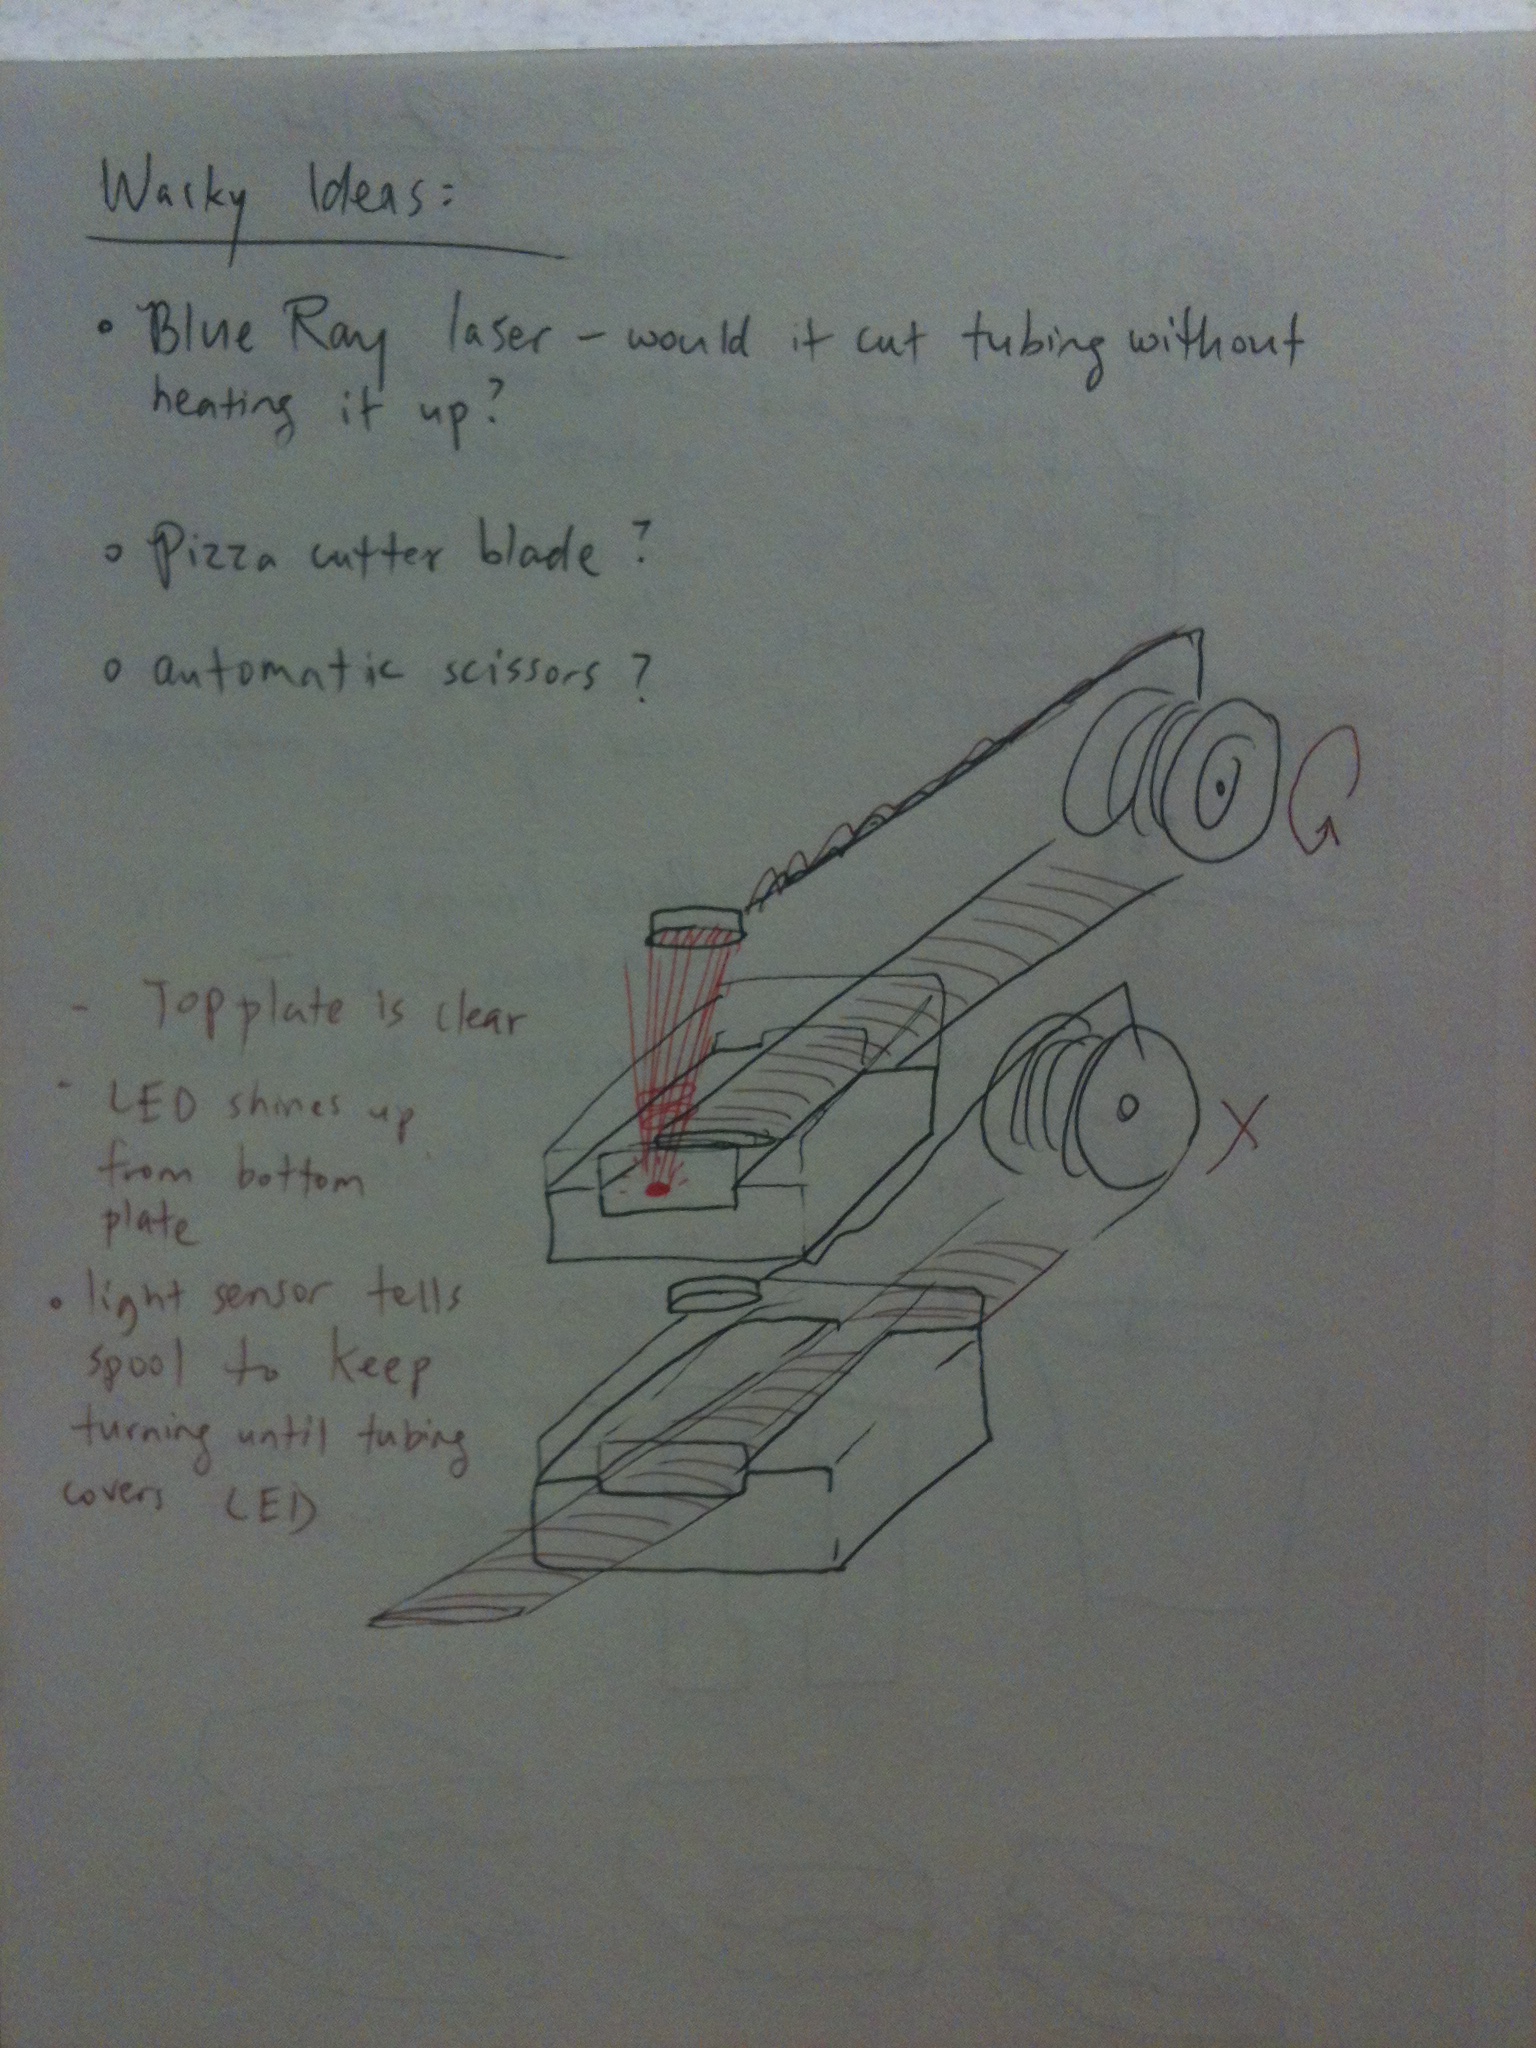 Wacky Ideas:
• Blue Ray laser - would it cut tubing without
heating it up?
• Pizza cutter blade?
• automatic scissors?
- Top plate is clear
- LED shines up
from bottom
plate
• light sensor tells
spool to keep
turning until tubing
covers LED
X